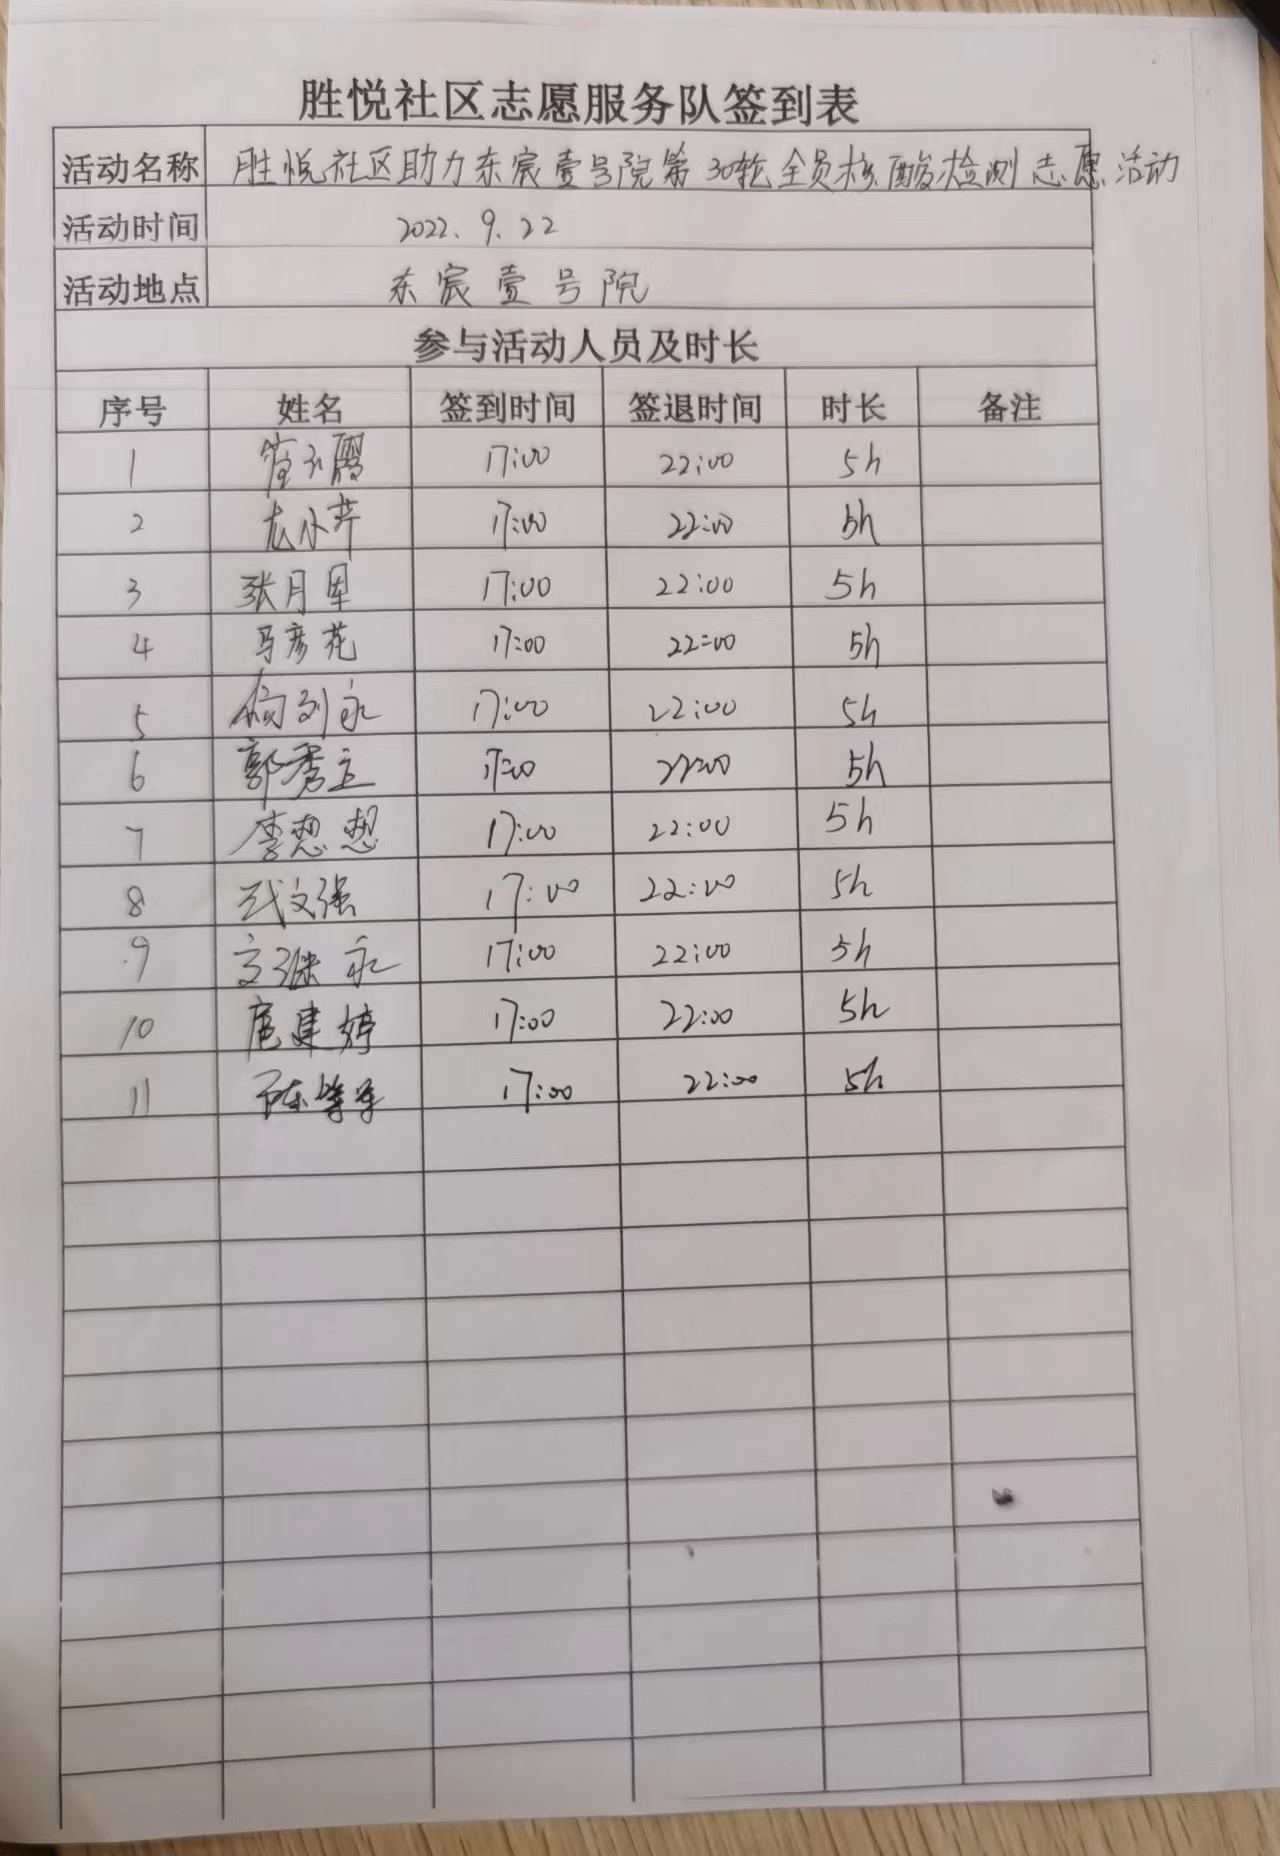 胜悦社区志愿服务队签到表
活动名称 胜悦社区助力东宸壹号院第30轮全员核酸检测志愿活动
活动时间 2022.9.22
活动地点 东宸壹号院
参与活动人员及时长
序号 姓名 签到时间 签退时间 时长 备注
1 17:00 22:00 5h
2 17:00 22:00 5h
3 张月 17:00 22:00 5h
4 马彦花 17:00 22:00 5h
5 17:00 22:00 5h
6 郭秀立 17:00 22:00 5h
7 李想想 17:00 22:00 5h
8 武文强 17:00 22:00 5h
9 17:00 22:00 5h
10 扈建婷 17:00 22:00 5h
11 陈 17:00 22:00 5h